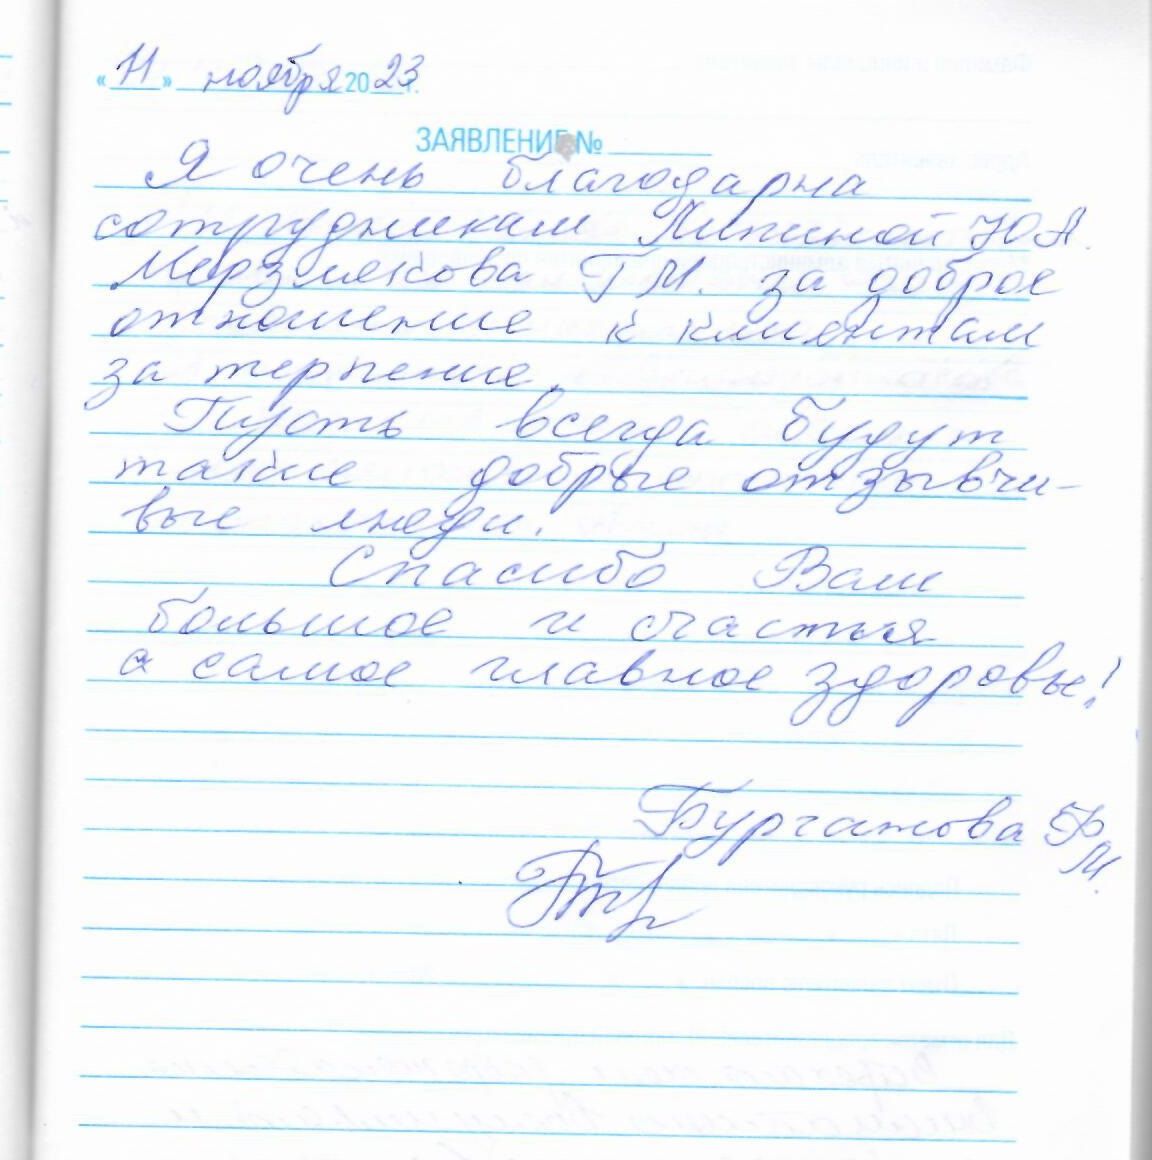 «11» ноября 2023 г.
ЗАЯВЛЕНИЕ №
Я очень благодарна
сотрудникам Липиной Ю А.
Мерзлякова Г М. за доброе
отношение к клиентам
за терпение.
Пусть всегда будут
такие добрые отзывчи-
вые люди.
Спасибо Вам
большое и счастья
а самое главное здоровье!